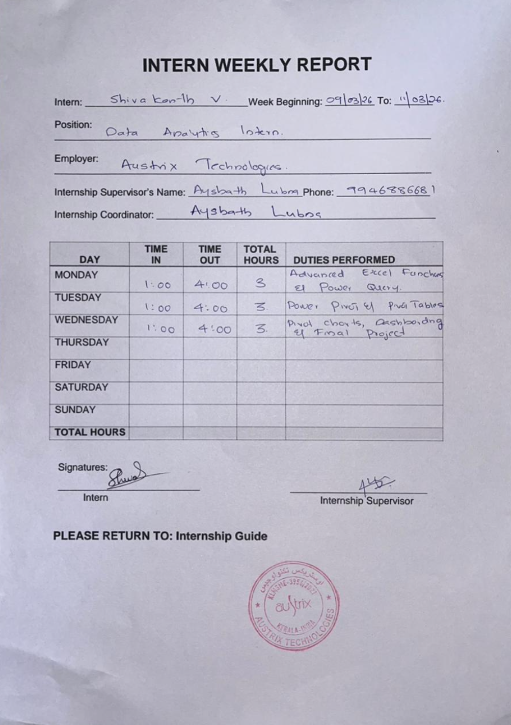 INTERN WEEKLY REPORT
Intern: Shiva kanth V. Week Beginning: 09/03/26 To: 11/03/26.
Position: Data Analytics Intern.
Employer: Austrix Technologies.
Internship Supervisor's Name: Aysbath Lubna Phone: 9946886681
Internship Coordinator: Aysbath Lubna
DAY TIME IN TIME OUT TOTAL HOURS DUTIES PERFORMED
MONDAY 1:00 4:00 3 Advanced Excel Functions & Power Query.
TUESDAY 1:00 4:00 3 Power Pivot & Pivot Tables
WEDNESDAY 1:00 4:00 3 Pivot charts, Dashboarding & Final Project
THURSDAY
FRIDAY
SATURDAY
SUNDAY
TOTAL HOURS
Signatures:
Intern Internship Supervisor
PLEASE RETURN TO: Internship Guide
austrix
KERALA, INDIA
AUSTRIX TECHNOLOGIES